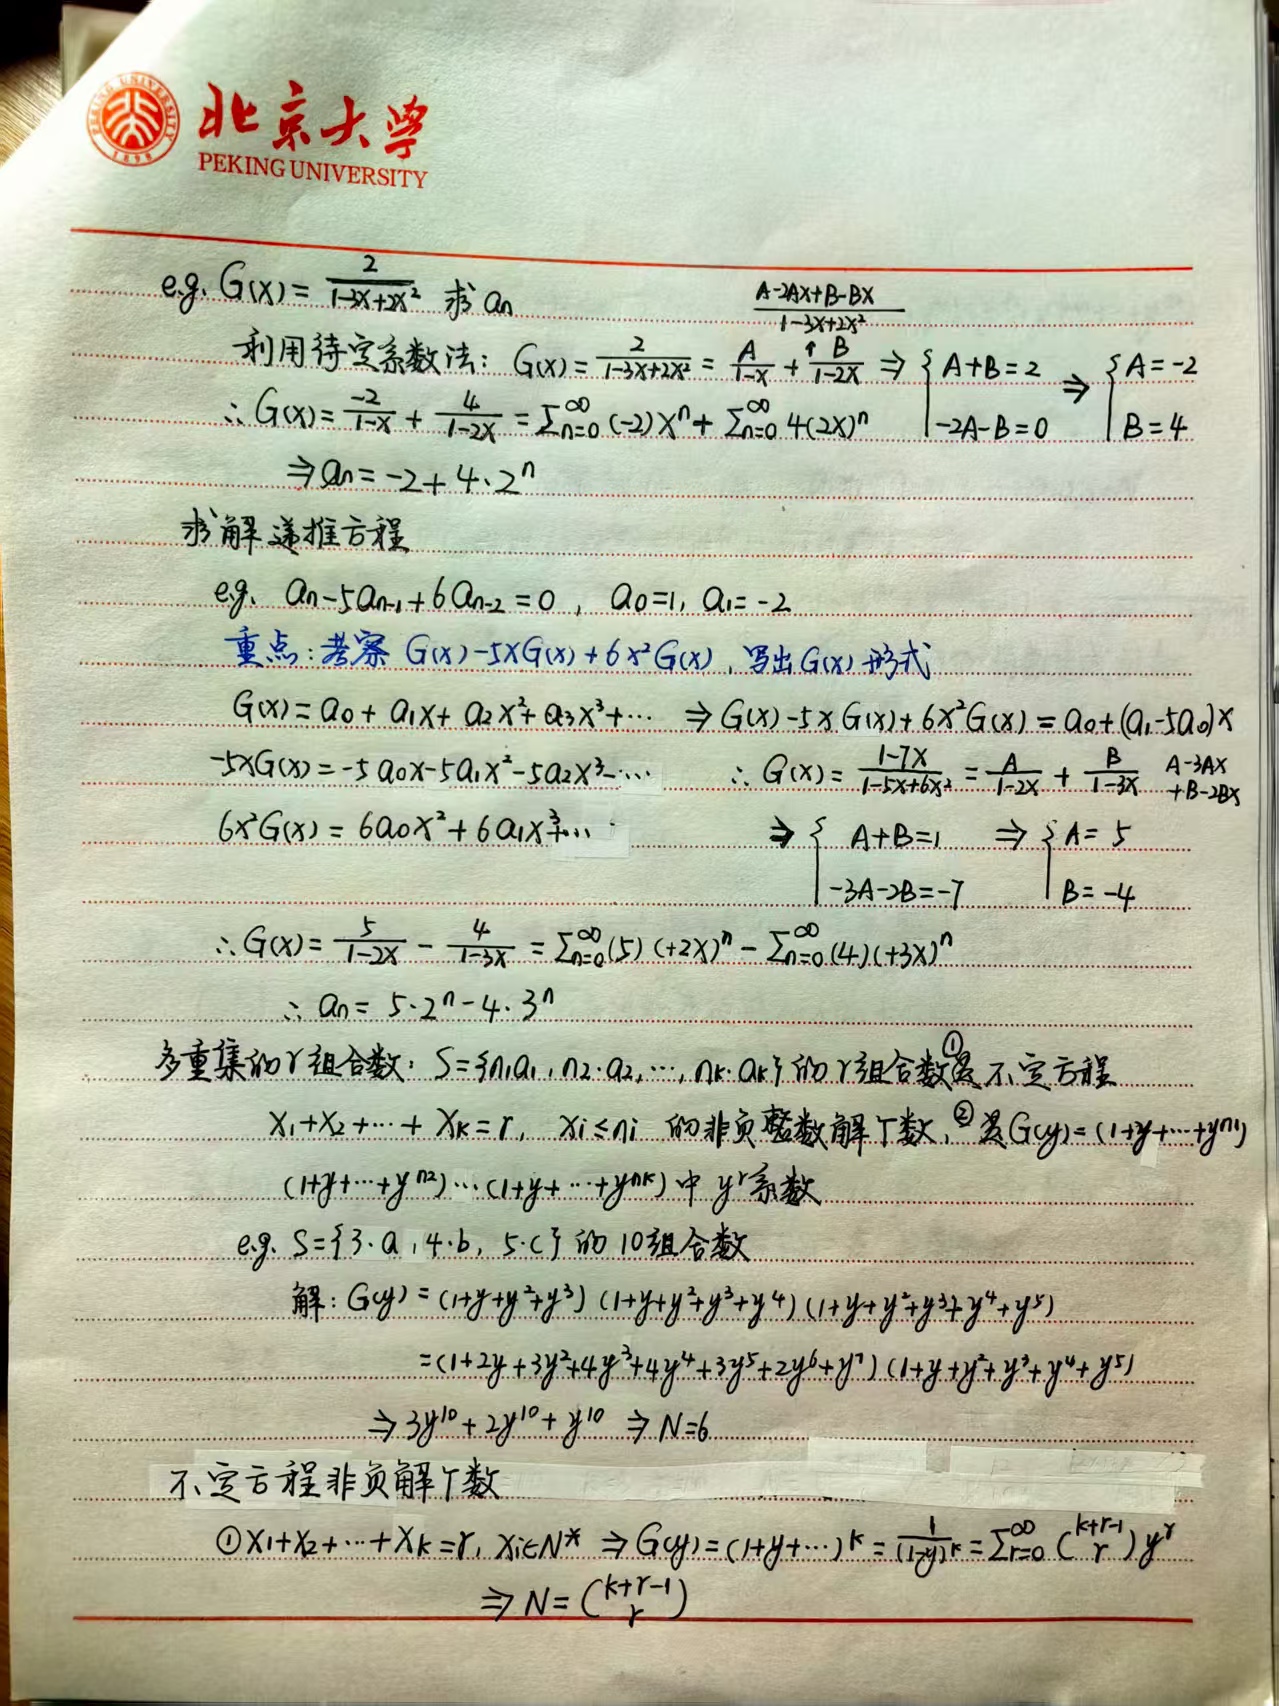 北京大学
PEKING UNIVERSITY
PEKING UNIVERSITY
1898
e.g. G(x) = 2/(1-3x+2x²) 求 an
(A-2Ax+B-Bx)/(1-3x+2x²)
利用待定系数法: G(x) = 2/(1-3x+2x²) = A/(1-x) + B/(1-2x) ⇒ { A+B=2 , -2A-B=0 ⇒ { A=-2 , B=4
∴ G(x) = -2/(1-x) + 4/(1-2x) = Σ_{n=0}^∞ (-2)xⁿ + Σ_{n=0}^∞ 4(2x)ⁿ
⇒ an = -2+4·2ⁿ
求解递推方程
e.g. an-5an-1+6an-2=0, a0=1, a1=-2
重点:考察 G(x)-5xG(x)+6x²G(x), 写出G(x)形式
G(x) = a0+a1x+a2x²+a3x³+… ⇒ G(x)-5xG(x)+6x²G(x) = a0+(a1-5a0)x
-5xG(x) = -5a0x-5a1x²-5a2x³-… ∴ G(x) = (1-7x)/(1-5x+6x²) = A/(1-2x) + B/(1-3x) A-3Ax +B-2Bx
6x²G(x) = 6a0x²+6a1x³+… ⇒ { A+B=1 , -3A-2B=-7 ⇒ { A=5 , B=-4
∴ G(x) = 5/(1-2x) - 4/(1-3x) = Σ_{n=0}^∞ (5)(+2x)ⁿ - Σ_{n=0}^∞ (4)(+3x)ⁿ
∴ an = 5·2ⁿ-4·3ⁿ
多重集的r组合数: S={n1a1, n2·a2, …, nk·ak}的r组合数①是不定方程
x1+x2+…+xk=r, xi≤ni 的非负整数解个数, ②是G(y)=(1+y+…+y^{n1})
(1+y+…+y^{n2})…(1+y+…+y^{nk})中 y^r系数
e.g. S={3·a, 4·b, 5·c}的10组合数
解: G(y) = (1+y+y²+y³)(1+y+y²+y³+y⁴)(1+y+y²+y³+y⁴+y⁵)
=(1+2y+3y²+4y³+4y⁴+3y⁵+2y⁶+y⁷)(1+y+y²+y³+y⁴+y⁵)
⇒ 3y¹⁰+2y¹⁰+y¹⁰ ⇒ N=6
不定方程非负解个数
①x1+x2+…+xk=r, xi∈N* ⇒ G(y)=(1+y+…)^k = 1/(1-y)^k = Σ_{r=0}^∞ (k+r-1 r) y^r
⇒ N=(k+r-1 r)